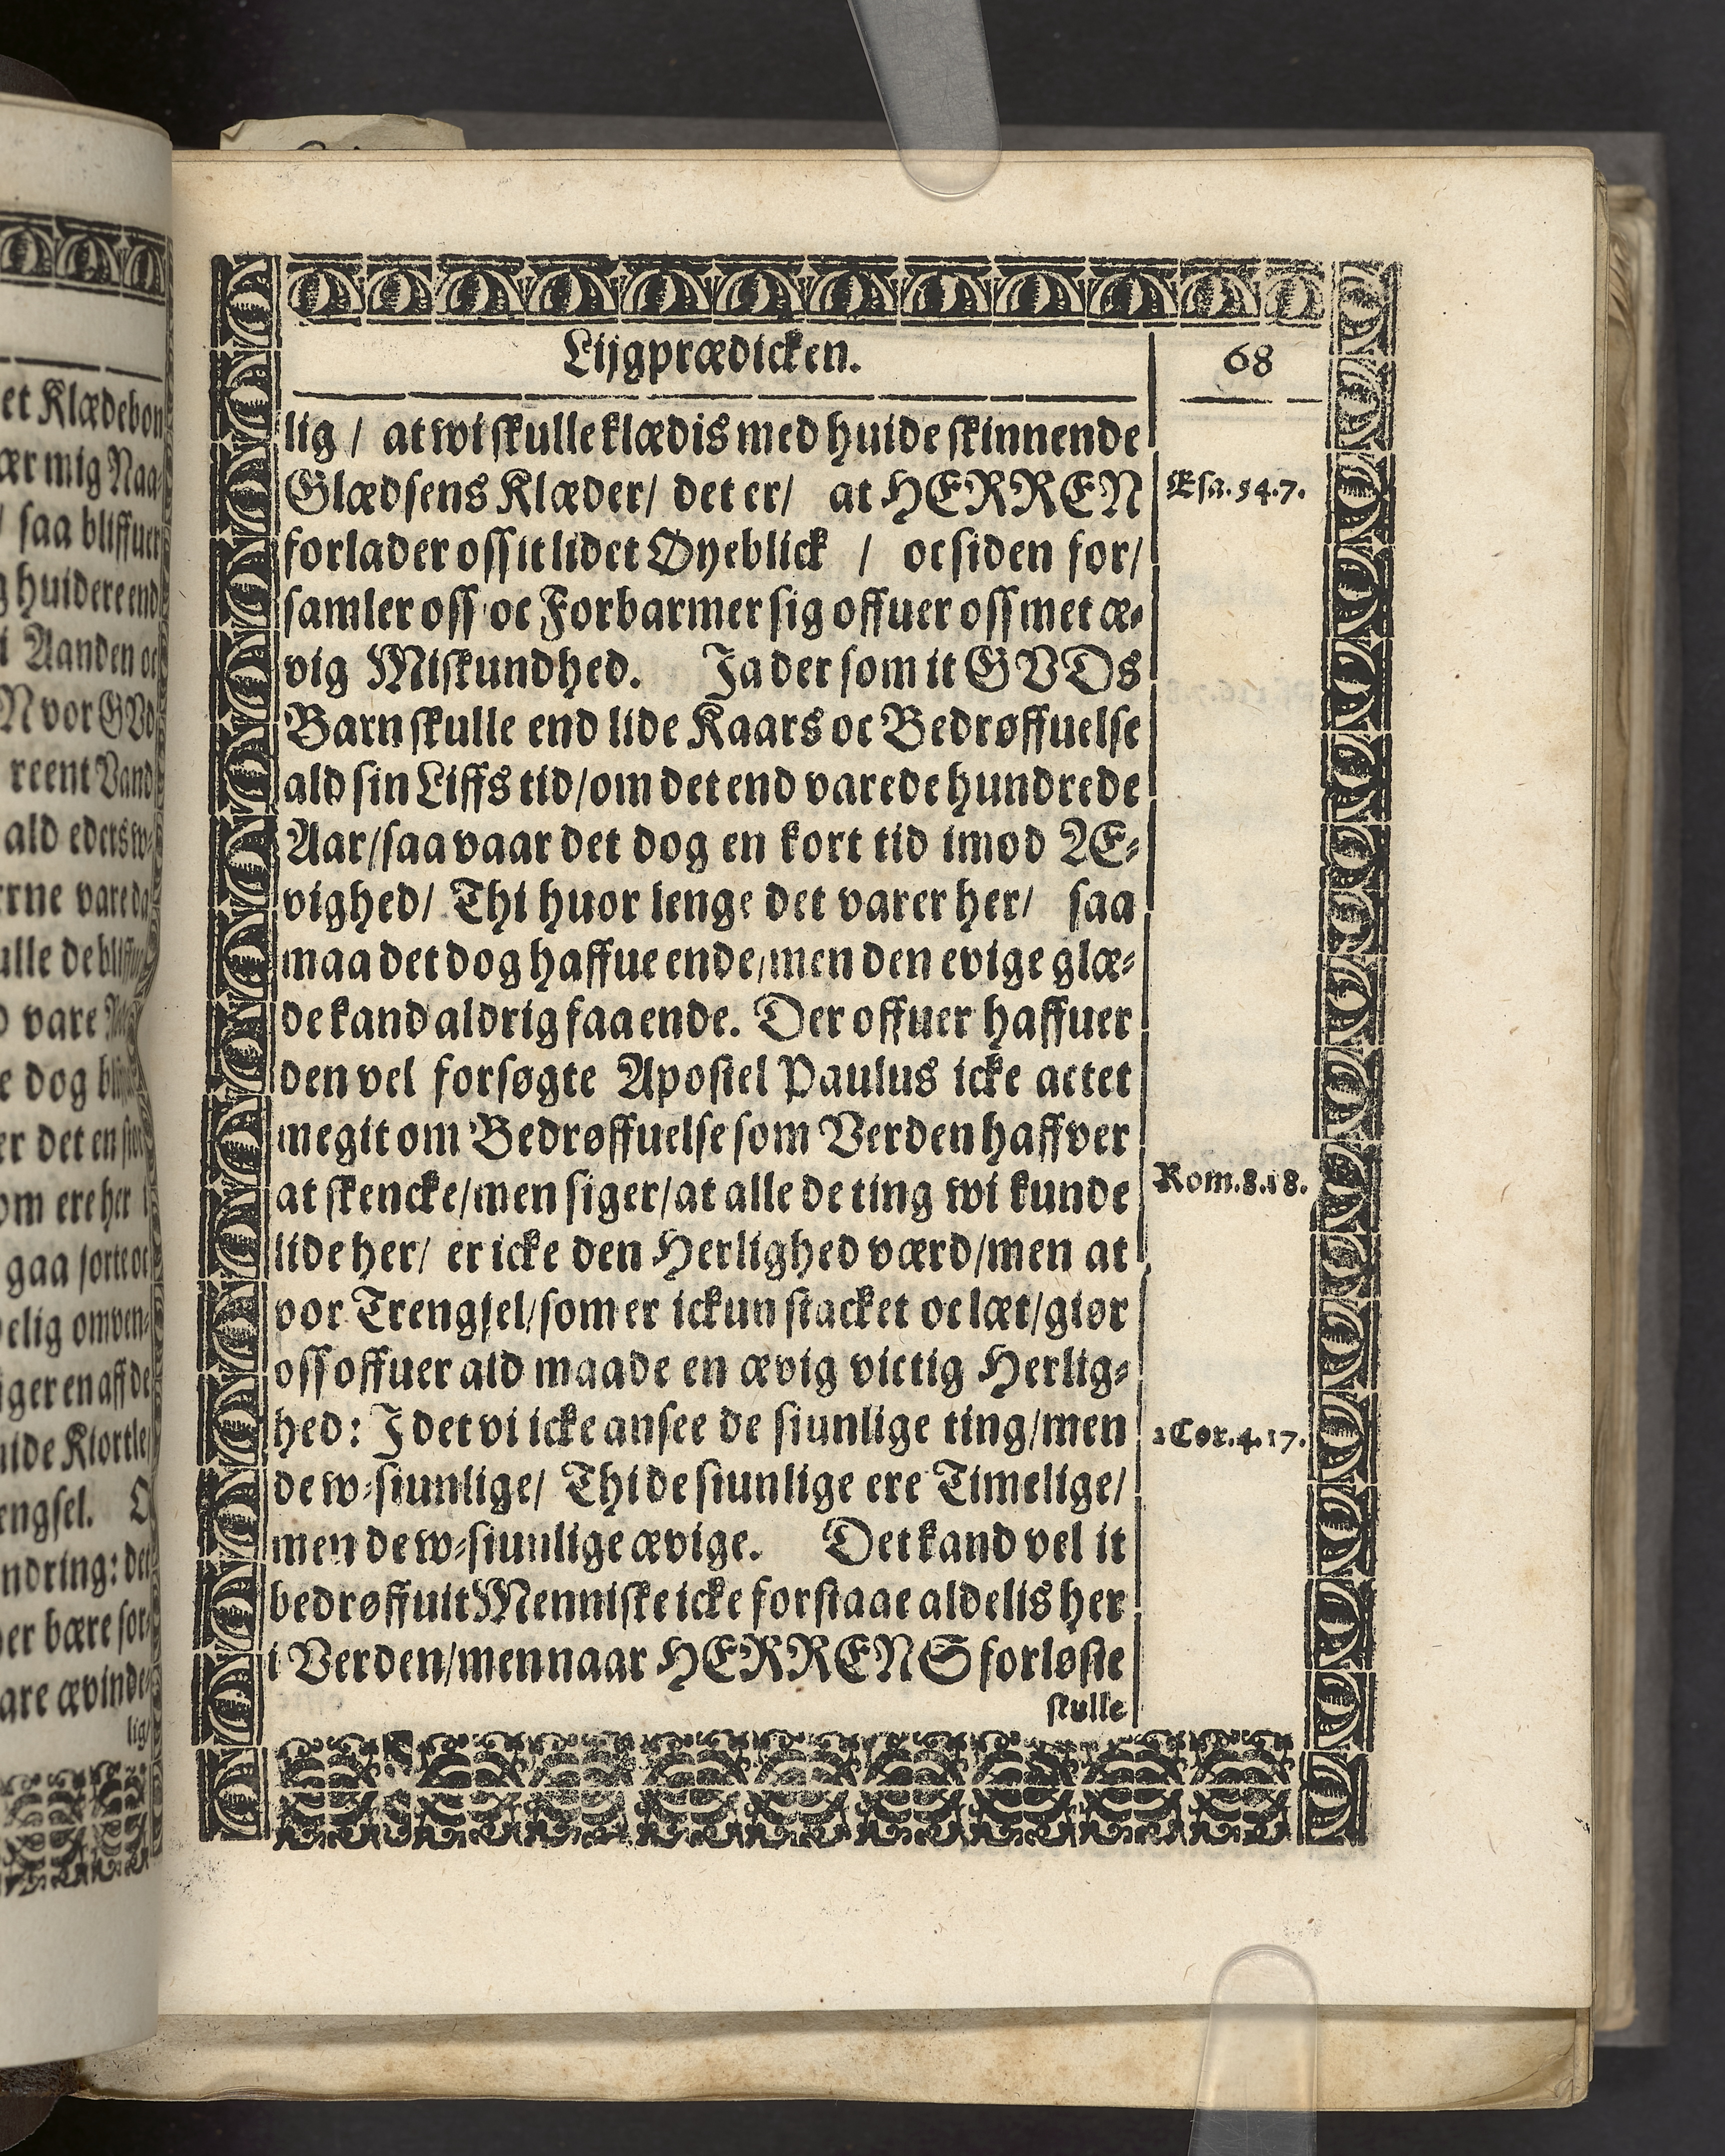 Lijgprædicken.
68
lig / at wi skulle klædis med huide skinnende
Glædsens Klæder/ det er/ at HERREN
Esa.54.7.
forlader oss it lidet Øyeblick / oc siden for/
samler oss oc Forbarmer sig offuer oss met æ-
vig Miskundhed. Ja der som it GVDs
Barn skulle end lide Kaars oc Bedrøffuelse
ald sin Liffs tid/om det end varede hundrede
Aar/saa vaar det dog en kort tid imod Æ-
vighed/ Thi huor lenge det varer her/ saa
maa det dog haffue ende/men den evige glæ-
de kand aldrig faa ende. Der offuer haffuer
den vel forsøgte Apostel Paulus icke actet
megit om Bedrøffuelse som Verden haffver
at skencke/men siger/at alle de ting wi kunde
Rom.8.18.
lide her/ er icke den Herlighed værd/men at
vor Trengsel/som er ickun stacket oc læt/giør
oss offuer ald maade en ævig victig Herlig-
hed: J det vi icke ansee de siunlige ting/men
2 Cor.4.17.
de w-siunlige/ Thi de siunlige ere Timelige/
men de w-siunlige ævige. Det kand vel it
bedrøffuit Menniske icke forstaae aldelis her
i Verden/men naar HERRENS forløste
skulle
et Klædebon
ær mig Naa-
/ saa bliffuer
g huidere end
i Aanden oc
N vor GVd
reent Vand
ald eders w-
rne vare da
ulle de
d vare
e dog
er det en stor
om ere her i
gaa sorte oc
elig omven-
iger en aff de
uide Kiortle
engsel.
ndring: det
er bære sor-
are ævinde-
lig/